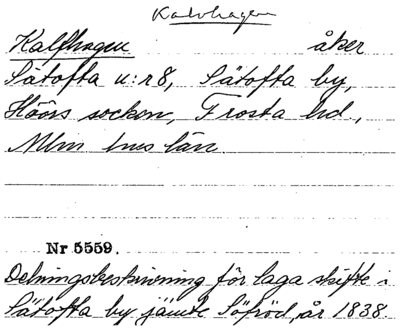 Kalvhagen
Kalfhagen åker
Sätofta n:r 8, Sätofta by,
Höörs socken, Frosta hd,
Mlm hus län
Nr 5559.
Delningsbeskrivning för laga skifte i
Sätofta by jämte Söfröd, år 1838.